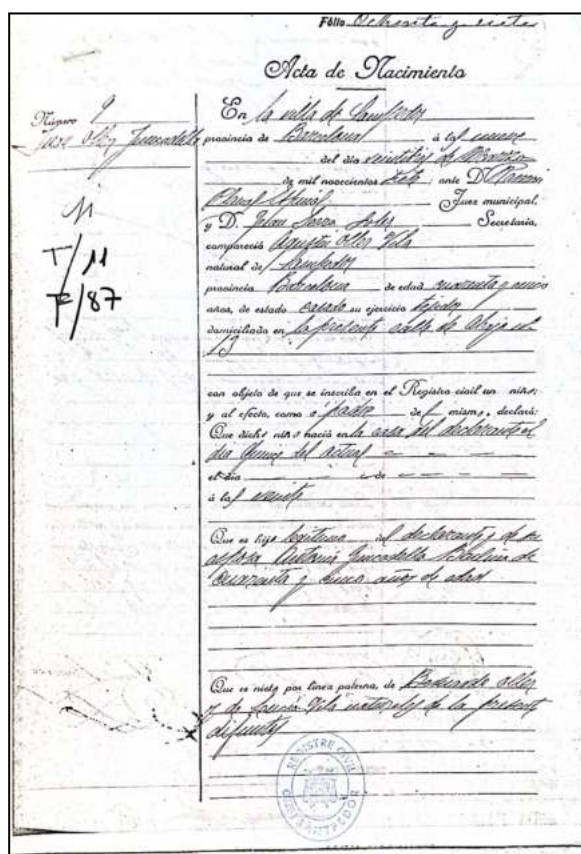 Fólio Ochenta y siete
Acta de Nacimiento
Número 9
En la villa de Sampedor
Jose Oller Juncadella
provincia de Barcelona á las nueve
del día veintitres de Marzo
de mil novecientos siete; ante D. Ramon
Juez municipal,
11
y D. Juan Serra Soler Secretario,
compareció Agustin Oller Vila
T/11
natural de Sampedor
Tº/87
provincia Barcelona de edad cuarenta y cinco
años, de estado casado su ejercicio tejedor
domiciliado en la presente calle de Abajo nº
13
con objeto de que se inscriba en el Registro civil un niño;
y al efecto, como padre del mismo, declaró:
Que dicho niño nació en la casa del declarante el
día quince del actual
el día de
á las
Que es hijo legitimo del declarante y de su
esposa Antonia Juncadella de
cuarenta y cinco años de edad
Que es nieto por línea paterna, de Oller
y de Vila naturales de la presente
difuntos
REGISTRE CIVIL
SANTPEDOR